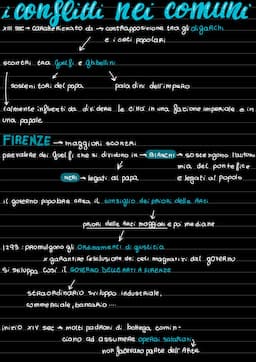 i conflitti nei comuni
XIII sec → caratterizzato da → contrapposizione tra gli oligarchi
e i ceti popolari
scontri tra Guelfi e Ghibellini
sostenitori del papa    paladini dell'impero
talmente influenti da dividere le città in una fazione imperiale e in
una papale
FIRENZE → maggiori scontri
prevalere dei Guelfi che si dividono in → BIANCHI → sostengono l'autono
mia del pontefice
NERI → legati al papa    e legati al popolo
il governo popolare crea il consiglio dei priori delle Arti
priori delle Arti maggiori e poi mediane
1293: promulgano gli Ordinamenti di giustizia
x garantire l'esclusione dei ceti magnatizi dal governo
si sviluppa così il GOVERNO DELLE ARTI A FIRENZE
straordinario sviluppo industriale,
commerciale, bancario ....
inizio XIV sec → molti padroni di bottega comin-
ciano ad assumere operai salariati
non facevano parte dell'Arte